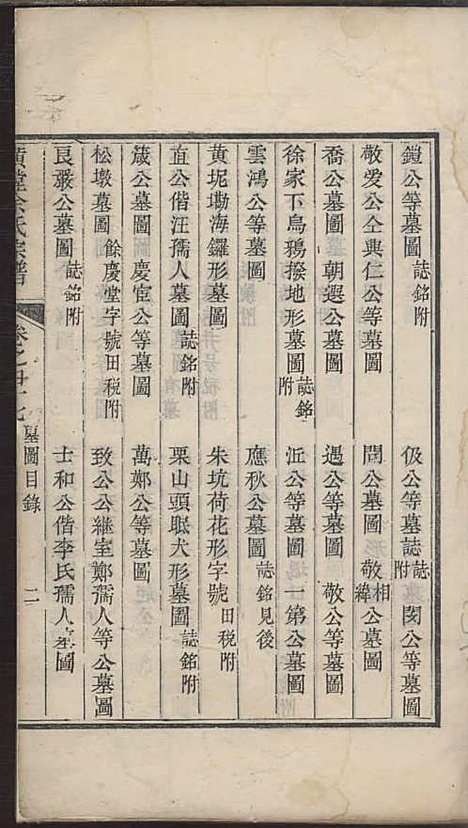 鎧公等墓圖 誌銘附 伋公等墓誌 誌附 閔公等墓圖
敬爱公仝與仁公等墓圖 閭公墓圖 敬相緯公墓圖
喬公墓圖 朝遐公等墓圖 遇公等墓圖 敬公等墓圖
徐家下烏鴉撥地形墓圖 誌銘附 洰公等墓圖 一第公墓圖
雲鴻公等墓圖 應秋公墓圖 誌銘見後
黄坭墈海鑼形墓圖 朱坑荷花形字號 田税附
直公偕汪孺人墓圖 誌銘附 栗山頭眠犬形墓圖 誌銘附
箴公墓圖 慶宦公等墓圖 萬鄭公等墓圖
松墩墓圖 餘慶堂字號田税附 致公公継室鄭孺人等公墓圖
良嚴公墓圖 誌銘附 士和公偕李氏孺人墓圖
余氏宗譜 墓圖目錄 二